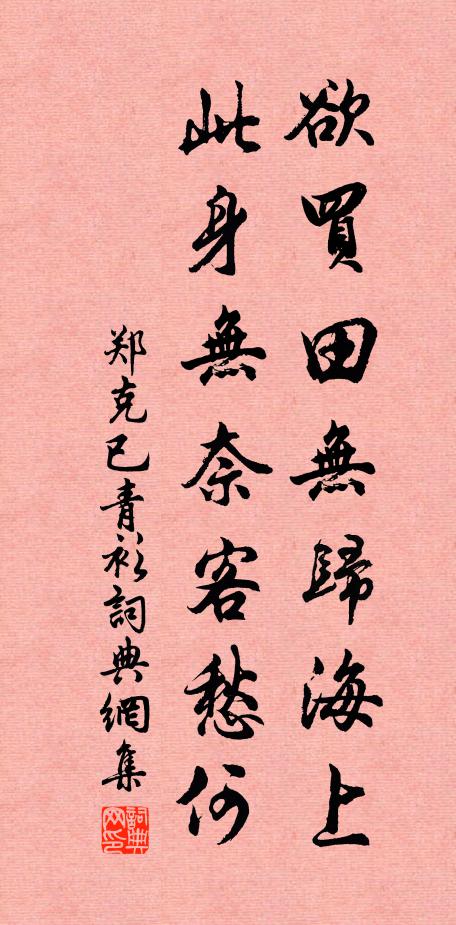 欲買田無歸海上
此身無奈客愁何
郑克己青衫詞典網集
詞典网印